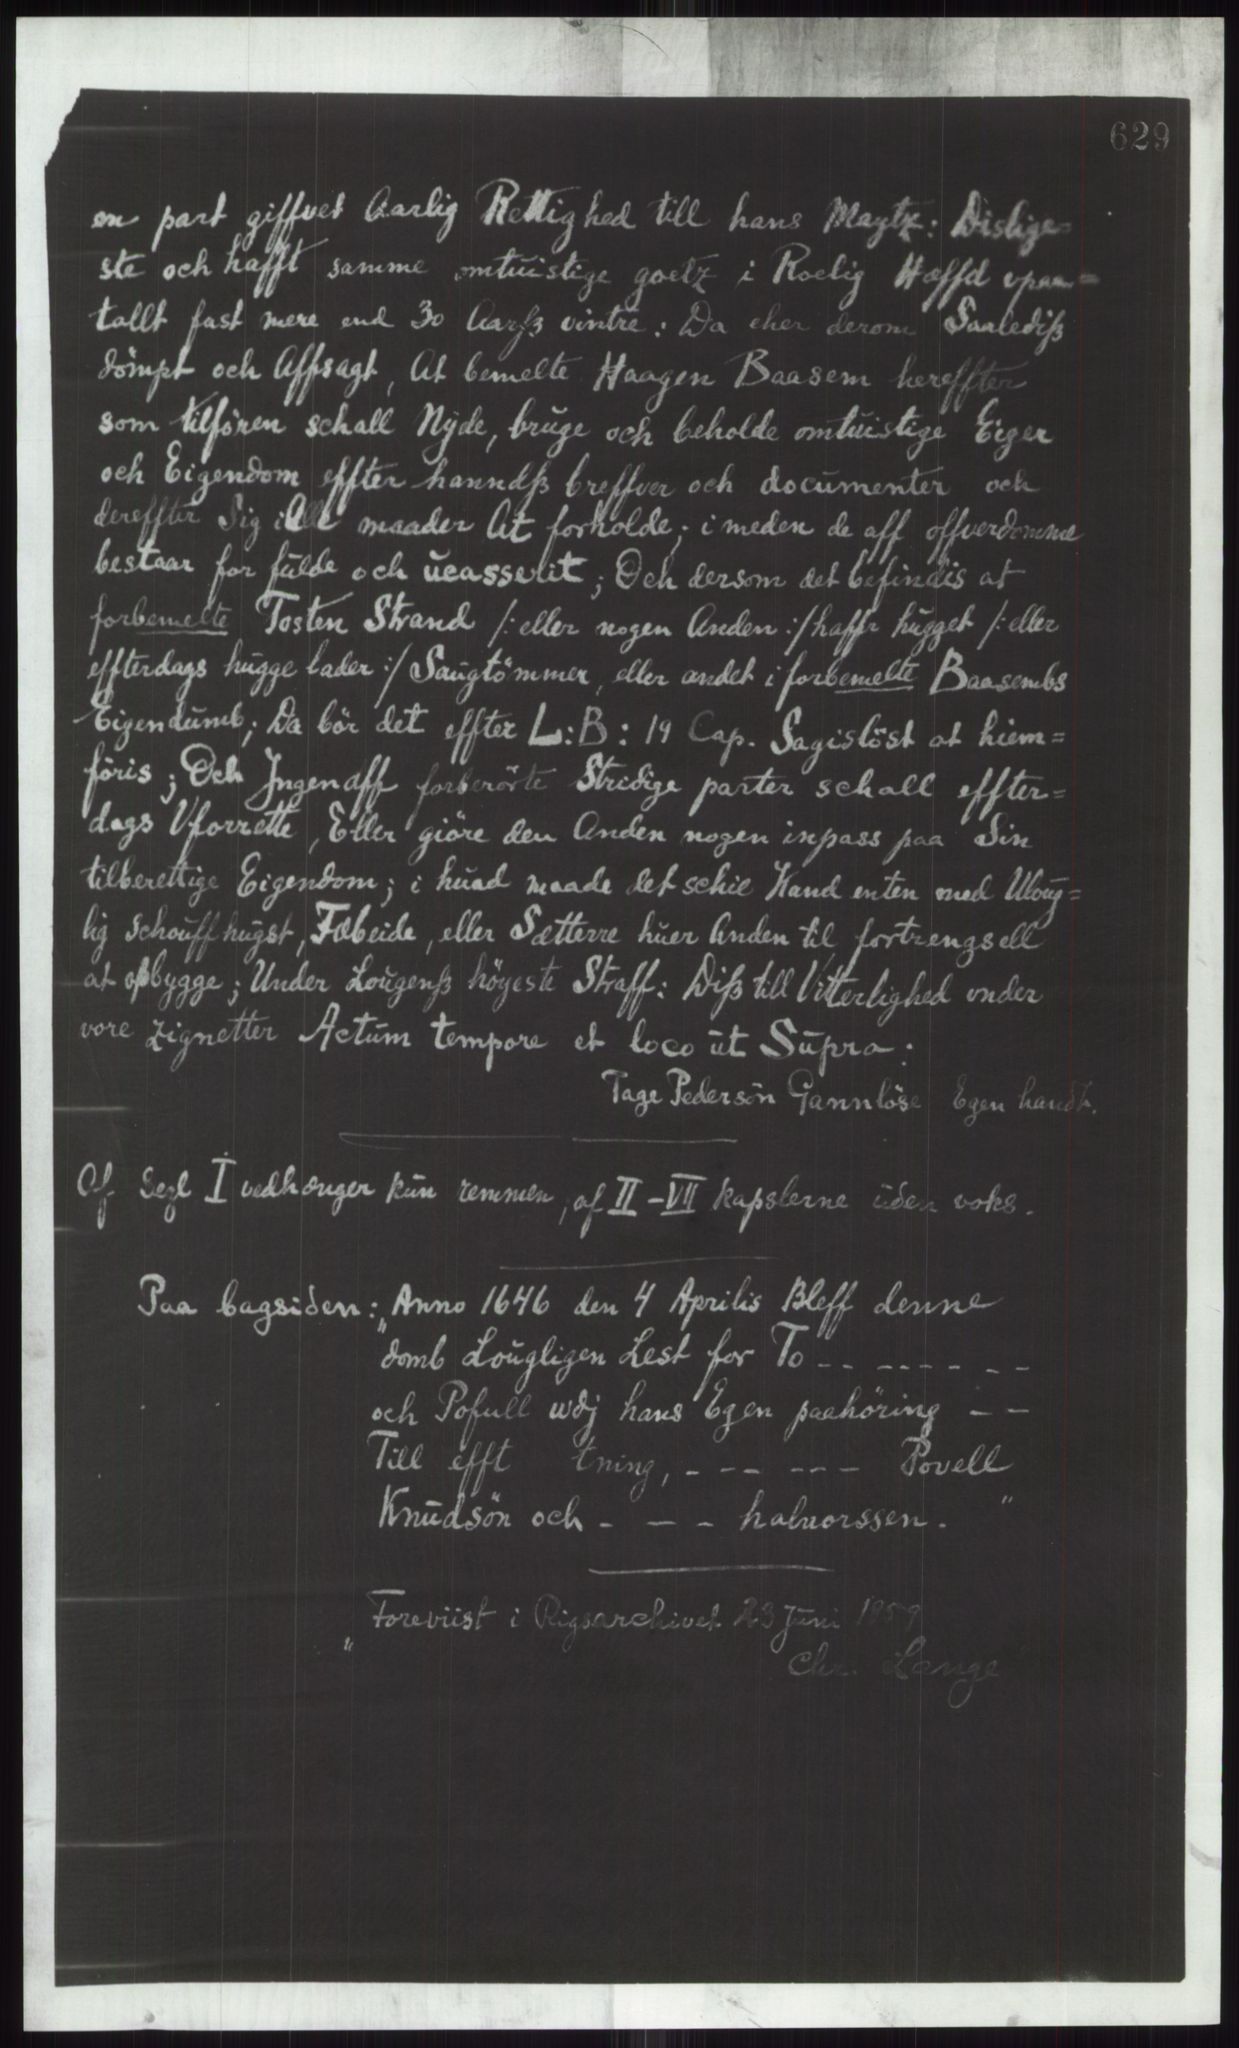 629
en part giffvet Aarlig Rettighed till hans Maytz: Dislige-
ste och hafft samme omtuistige goetz i Roelig Hæffd vpaa=
tallt fast mere end 30 Aarß vintre: Da eher derom Saalediß
dömpt och Affsagt, At bemelte Haagen Baasem hereffter
som tilforen schall Nyde, bruge och beholde omtuistige Eiger
och Eigendom effter hanndß breffver och documenter och
dereffter Sig i Alle maader At forholde; i meden de aff offverdomme
bestaar for fulde och ucasserit; Och dersom det befindis at
forbemelte Tosten Strand /: eller nogen Anden :/ haffr hugget /: eller
effterdags hugge lader :/ Saugtömmer, eller andet i forbemelte Baasembs
Eigendumb; Da bör det effter L:B: 19 Cap. Sagislöst at hiem=
föris; Och Jngen aff forberörte Stridige parter schall effter=
dags Vforrette, Eller giöre den Anden nogen inpass paa Sin
tilberettige Eigendom; i huad maade det schie Kand enten med Uloug=
lig schouffhugst, Fæbeide, eller Sætterre huer Anden til fortrengsell
at opbygge; Under Lougenß höyeste Straff: Diß till Vitterlighed vnder
vore Zignetter Actum tempore et loco ut Supra:
Tage Pedersön Gannlöse Egen handt.
Af Segl I vedhænger kun remmen, af II-VII kapslerne uden voks.
Paa bagsiden: „Anno 1646 den 4 Aprilis Bleff denne
domb Lougligen Lest for To - - - - - - - -
och Pofull udj hans Egen paahöring - -
Till efft tning, - - - - - - Povell
Knudsön och - - - haluorssen. "
„Foreviist i Rigsarchivet 23 Juni 1859
Chr. Lange"